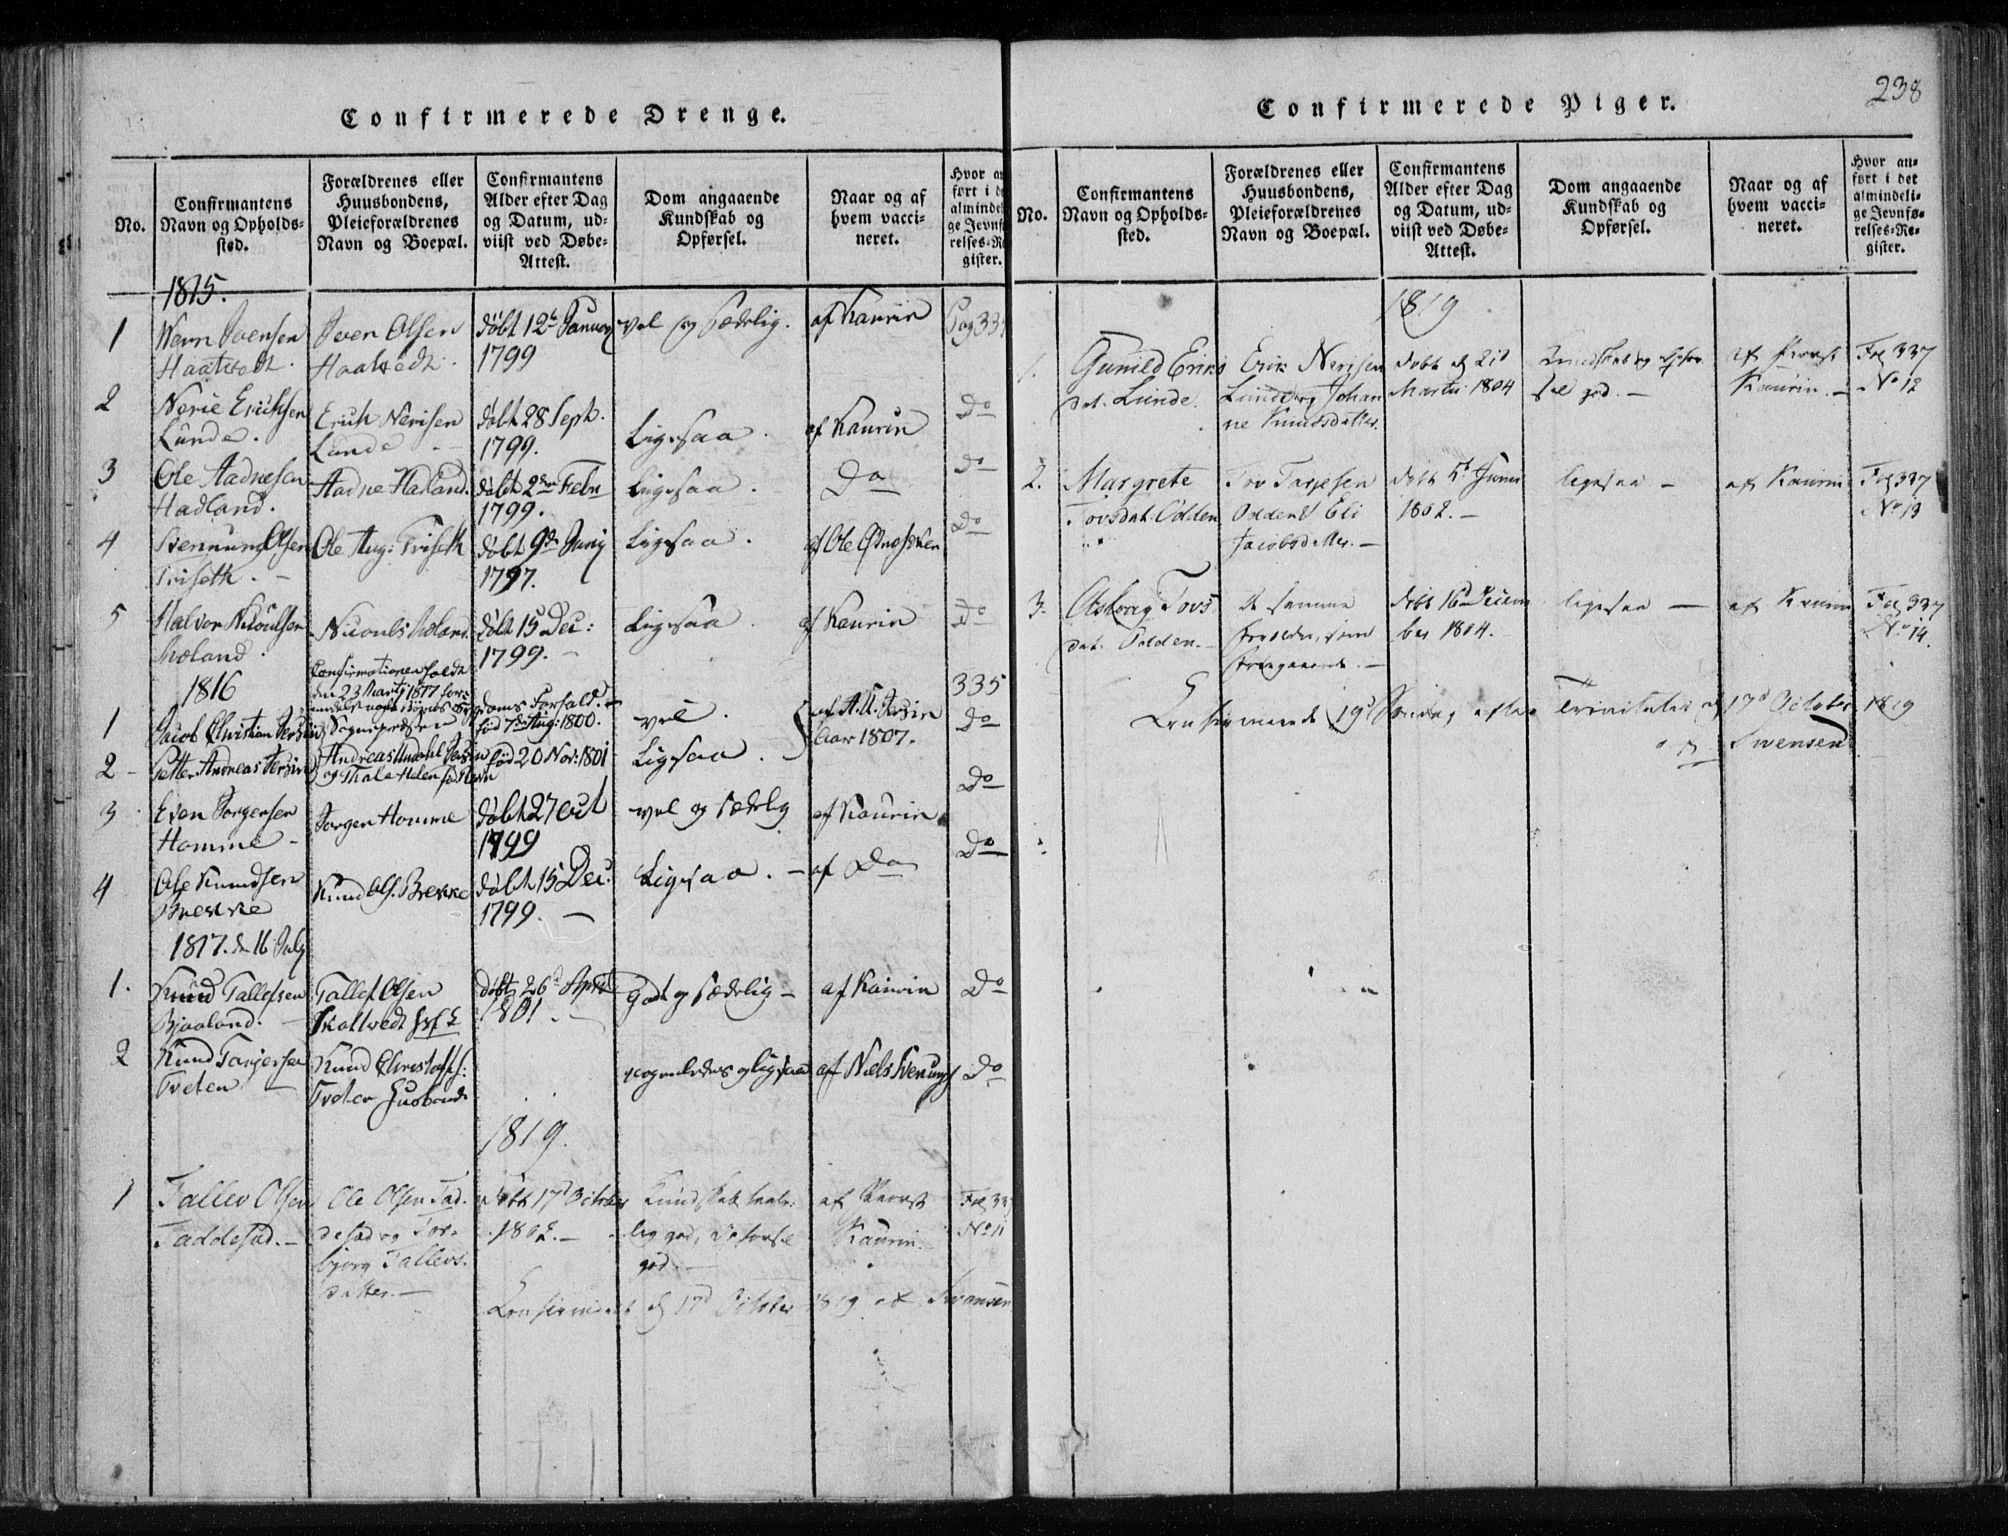 238
Confirmerede Drenge.
No.
Confirmantens
Navn og Opholds-
sted.
Forældrenes eller
Huusbondens,
Pleieforældrenes
Navn og Boepæl.
Confirmantens
Alder efter Dag
og Datum, ud-
viist ved Døbe-
Attest.
Dom angaaende
Kundskab og
Opførsel.
Naar og af
hvem vacci-
neret.
Hvor an
ført i de
almindel
ge Jevnfø
relses-Re
gister.
1815.
1
Joensen
Haatvedt.
Joen Olsen
Haatvedt.
døbt 12te Januarj
1799
vel og sædelig.
af Kaurin
Pag 335
2
Nerie Erichsen
Lunde.
Erich Nerisen
Lunde
døbt 28 Sept.
1799.
Ligesaa.
af Kaurin
Do
3
Ole Aadnesen
Hadland.
Aadne Hadland.
døbt 2den Febr
1799.
Ligesaa.
Do
Do
4
Olsen
Triseth.
Ole Aug: Triseth
døbt 9de Junj
1797.
Ligesaa.
af Ole
Do
5
Halvor Nicoulsen
Moland.
Nicouls Moland.
døbt 15 Dec:
1799.
Ligesaa.
af Kaurin
Do
1816
Confirmationen holdt
den 23 Martj 1817 for-
doms Forfald.
335
1
Jacob Christian Jersin
Sogneprdsten
fød 7de Aug: 1800.
vel.
af A. U. Jersin
Aar 1807.
Do
2
Petter Andreas Jersin
Andreas Undahl Jersin
og Thale Helene
fød 20 Nov: 1801
Ligesaa.
Do
3
Even Jorgensen
Homme
Jorgen Homme
døbt 27 Oct
1799
vel og sædelig
af Kaurin
Do
4
Ole Knudsen
Brekke
Knud Ols. Brekke
døbt 15 Dec.
1799.
Ligesaa.
af Do
1817. d. 16 July
1.
Knud Tallefsen
Bjaaland.
Tallef Olsen
Skaltvedt
døbt 26d April
1801.
Godt og sædelig
af Kaurin
Do
2
Knud Tarjersen
Tveten
Knud Christophs:
Tveten Husbonde
nogenledes og ligesaa
af Niels
Do
1819.
1
Tallev Olsen
Taddesad.
Ole Olsen Tad-
desad og Tor-
bjørg Tallevs-
datter.
Døbt 17d October
1802.
Kundskab taale-
lig god, Opførsel
god.
af Provst
Kaurin.
Fol 337
No 11
Confirmeret d 17d October 1819 af Svensen
Confirmerede Piger.
No.
Confirmantens
Navn og Opholds-
sted.
Forældrenes eller
Huusbondens,
Pleieforældrenes
Navn og Boepæl.
Confirmantens
Alder efter Dag
og Datum, ud-
viist ved Døbe-
Attest.
Dom angaaende
Kundskab og
Opførsel.
Naar og af
hvem vacci-
neret.
Hvor an-
ført i det
almindeli-
ge Jevnfø-
relses-Re-
gister.
1819
1.
Gunild Eriks
dat. Lunde.
Erik Nerisen
Lunde og Johan
ne Knudsdatter.
døbt d 21d
Martii 1804
Kundskab og Opfør-
sel god.
af Provst
Kaurin.
Fol 337
No 12
2.
Margrete
Tovsdat. Odden
Tov Tarjesen
Odden Eli
Jacobsdatter.
døbt 5d Junii
1802.
ligesaa
af Kaurin
Fol 337
No 13
3.
Aslaug Tovs
dat. Odden.
De samme
Forældre, som
foregaaende.
døbt 16d Decem
ber 1804.
ligesaa
af Kaurin
Fol 337
No 14.
Confirmerede 19d Søndag efter Trinitatis d 17d October 1819
af Svensen